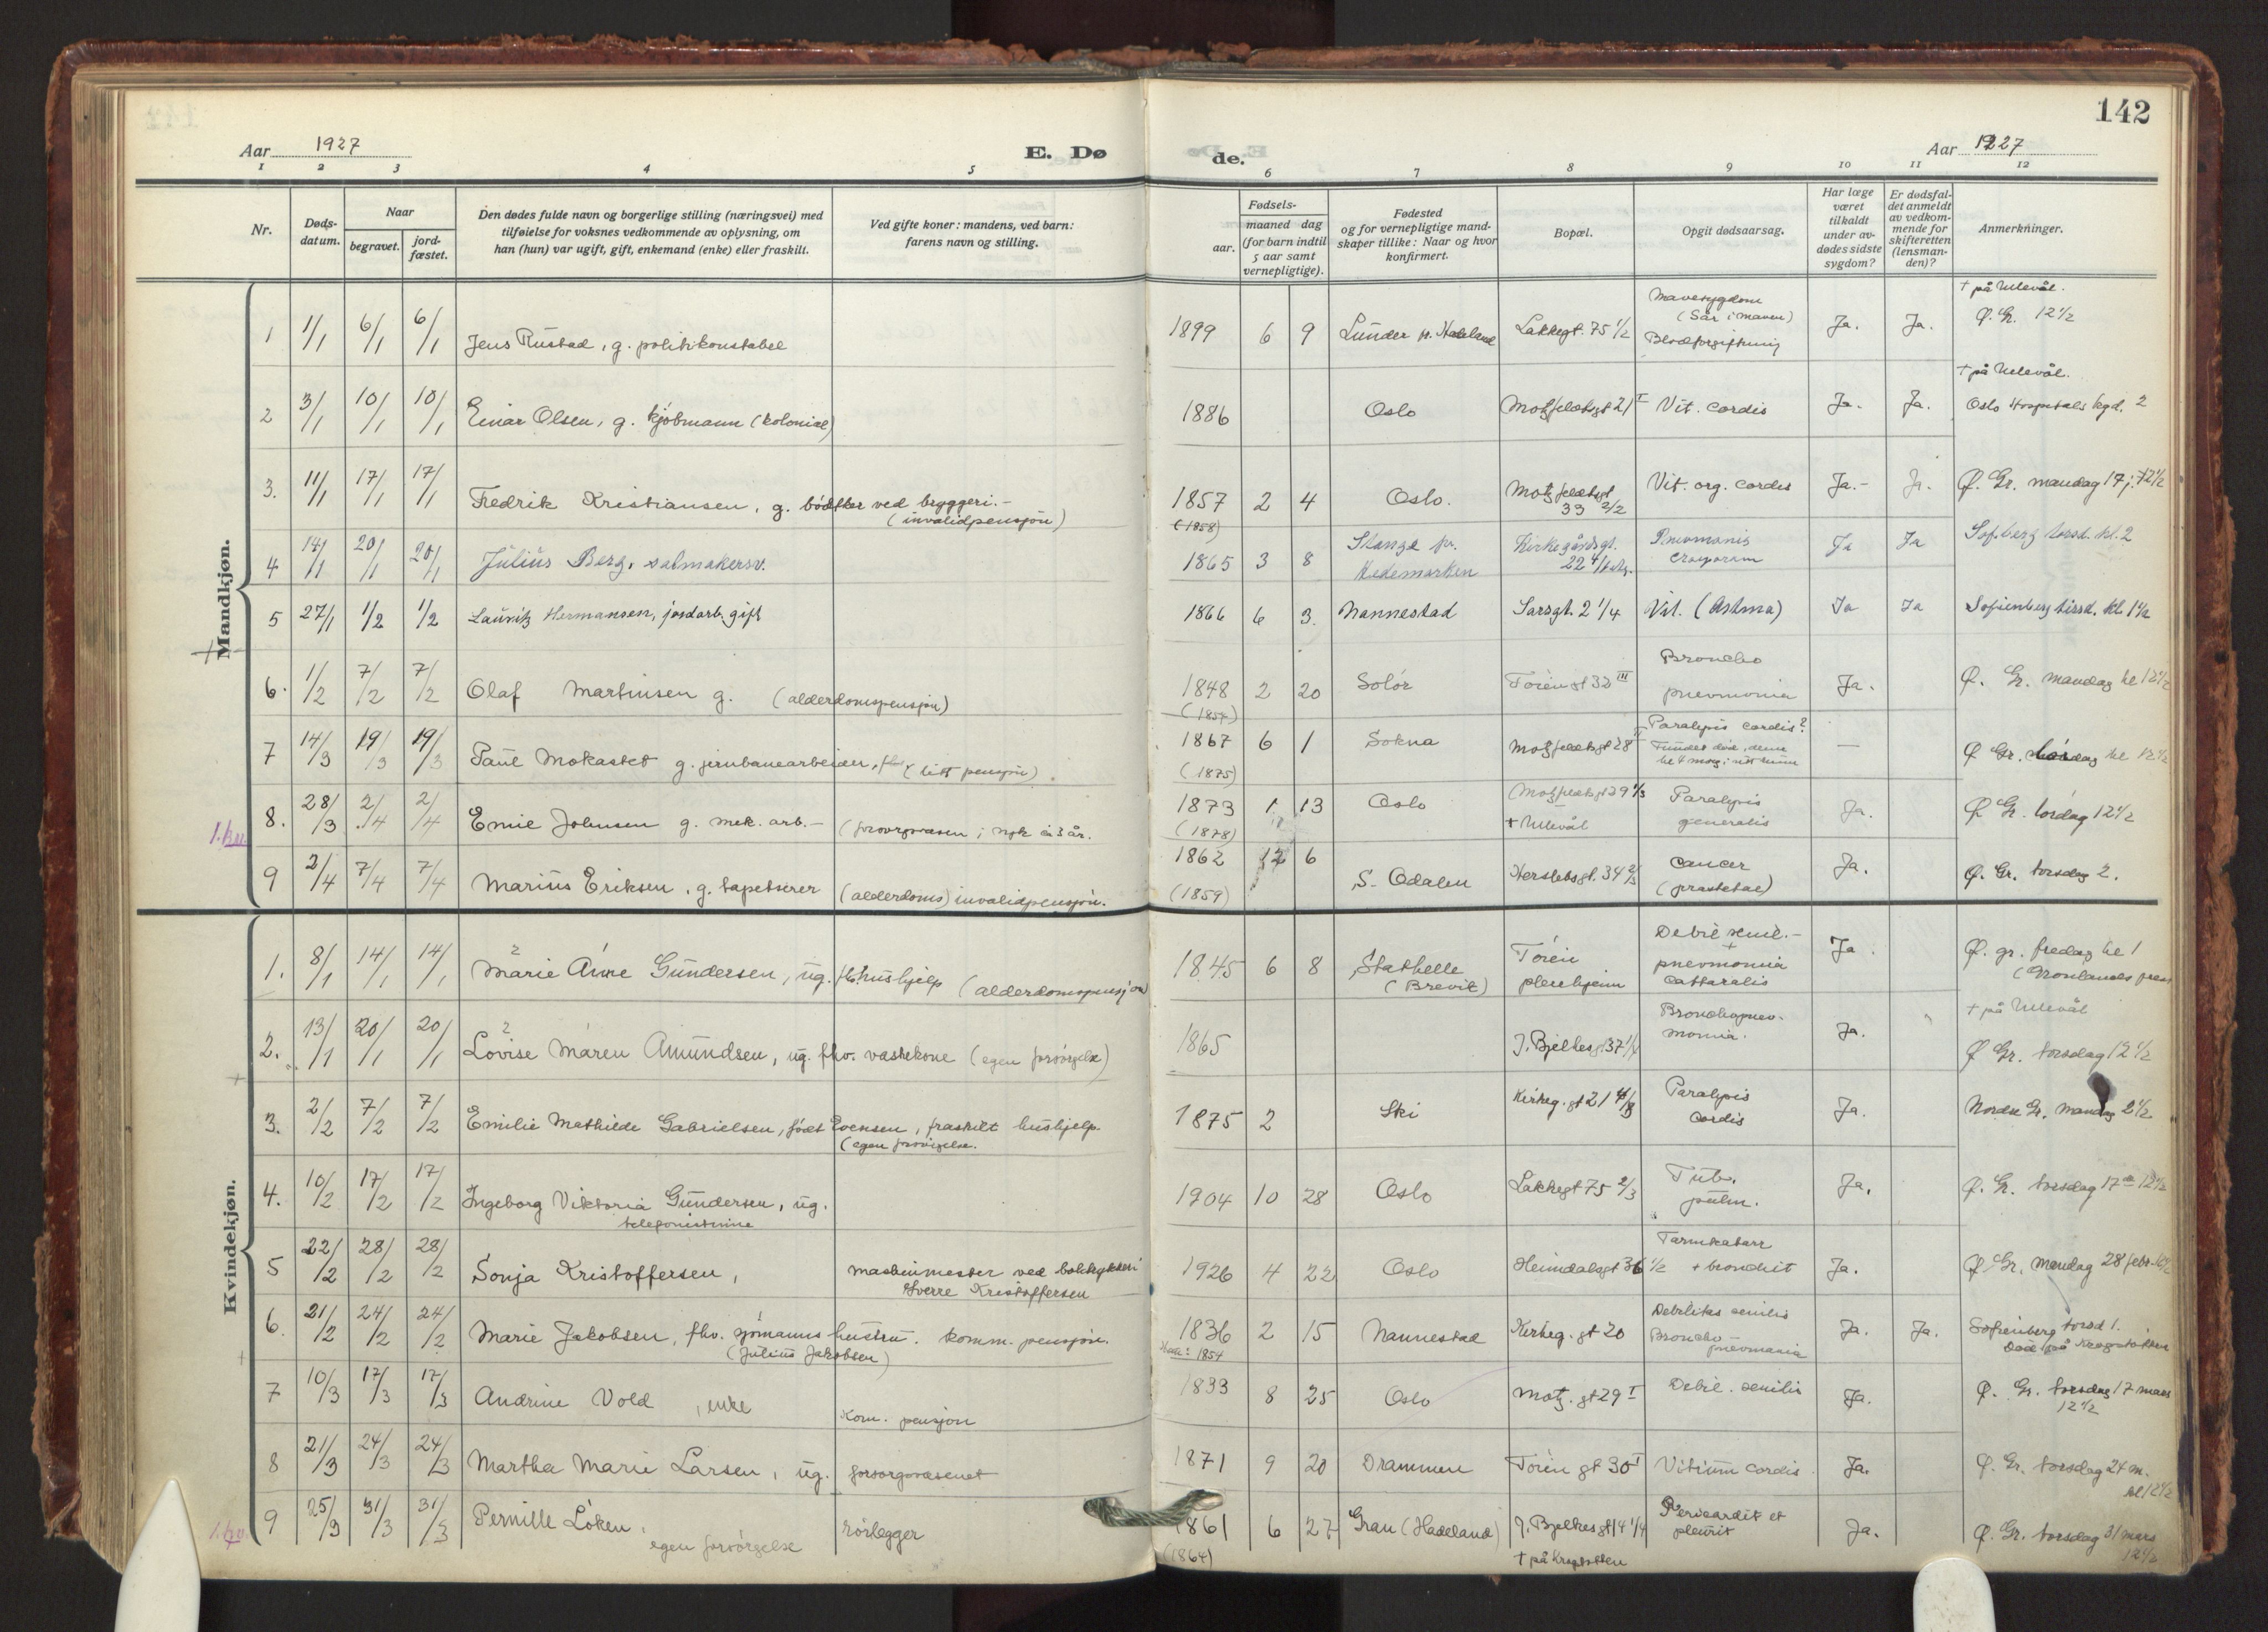 142
Aar 1927 E. Dø de. Aar 1927
1 2 3 4 5 6 7 8 9 10 11 12
Nr. Døds-datum. Naar begravet. jord-fæstet. Den dødes fulde navn og borgerlige stilling (næringsvei) med tilføielse for voksnes vedkommende av oplysning, om han (hun) var ugift, gift, enkemand (enke) eller fraskilt. Ved gifte koner: mandens, ved barn: farens navn og stilling. Fødsels- aar. maaned dag (for barn indtil 5 aar samt vernepligtige). Fødested og for vernepligtige mand-skaper tillike: Naar og hvor konfirmert. Bopæl. Opgit dødsaarsag. Har læge været tilkaldt under av-dødes sidste sygdom? Er dødsfal-det anmeldt av vedkom-mende for skifteretten (lensman-den)? Anmerkninger.
Mandkjøn.
1 1/1 6/1 6/1 Jens Rustad, g. politikonstabel 1899 6 9 Lunder p. Hadeland Lakkegt. 75 1/2 Mavesygdom (Sår i maven) Blodforgiftning Ja. Ja. † på Ullevål. Ø. Gr. 12 1/2
2 3/1 10/1 10/1 Einar Olsen, g. kjøbmann (kolonial) 1886 Oslo Motzfeldtsgt 21 I Vit. cordis Ja. Ja. † på Ullevål. Oslo Hospitals kgd. 2
3. 11/1 17/1 17/1 Fredrik Kristiansen, g. bødtker ved bryggeri.- (invalidpensjon) 1857 (1858) 2 4 Oslo. Motzfeldtsgt 33 2/2 Vit. org. cordis Ja.- Ja. Ø. Gr. mandag 17 j. 12 1/2
4 14/1 20/1 20/1 Julius Berg, salmakersv. 1865 3 8 Stange p. Hedemarken Kirkegårdsgt. 22 Pneumonis crouporam Ja Ja Sof.berg torsd. kl. 2
5 27/1 1/2 1/2 Lauritz Hermansen, jordarb. gift 1866 6 3. Nannestad Sarsgt. 2 1/4 Vit. (Astma) Ja Ja Sofienberg tirsd. kl. 1 1/2
6. 1/2 7/2 7/2 Olaf Martinsen g. (alderdomspensjon) 1848 (1854) 2 20 Solør Tøien gt 32 III Broncho pneumonia Ja. Ø. Gr. mandag kl 12 1/2
7 14/3 19/3 19/3 Paul Mokastet g. jernbanearbeider, (litt pensjon). 1867 (1875) 6 1 Sokna Motzfeldtsgt 28 II Paralysis cordis? Fundet død, denne — Ø Gr. lørdag kl 12 1/2
8. 28/3 2/4 2/4 Emil Johnsen g. mek. arb.- (forsorgsvæsen; 3 år. 1873 (1878) 1 13 Oslo Motzfeldtsgt 29 1/3 † Ullevål Paralysis generalis Ja. Ø Gr. lørdag 12 1/2
9 2/4 7/4 7/4 Marius Eriksen, g. tapetserer (alderdoms) invalidpensjon. 1862 (1859) 12 6 S. Odalen Herslebsgt. 34 2/3 Cancer (prostatae) Ja. Ø. Gr. torsdag 2.
Kvindekjøn.
1. 8/1 14/1 14/1 Marie Anne Gundersen, ug. fhv. hushjelp (alderdomspensjon) 1845 6 8 Stathelle (Brevik) Tøien pleiehjem Debil. senil.- + pneumonia cattaralis Ja. Ø. gr. fredag kl 1 (Grønlands prest
2. 13/1 20/1 20/1 Lovise Maren Amundsen, ug. fhv. vaskekone (egen forsørgelse) 1865 J. Bjelkesgt 37 1/4 Bronchopneumonia. Ja. † på Ullevål Ø Gr. torsdag 12 1/2
3. 2/2 7/2 7/2 Emilie Mathilde Gabrielsen, født Evensen, fraskilt hushjelp. (egen forsørgelse. 1875 2 Ski Kirkeg. gt 21 4/3 Paralysis cordis Ja. Nordre Gr. mandag 2 1/2
4. 10/2 17/2 17/2 Ingeborg Viktoria Gundersen, ug. telefonistinne 1904 10 28 Oslo Lakkegt 75 2/3 Tub. pulm. Ja. Ø. Gr. torsdag 17de 12 1/2
5 22/2 28/2 28/2 Sonja Kristoffersen, maskinmester ved boktrykkeri Sverre Kristoffersen 1926 4 22 Oslo Heimdalsgt 36 1/2 Tarmkatarr + bronchit Ja. Ø. Gr. mandag 28 febr.
6. 21/2 24/2 24/2 Marie Jakobsen, fhv. sjømanns hustru. komm. pensjon. (Julius Jakobsen) 1836 1854 2 15 Nannestad Kirkeg. gt 20 Debilitas senilis Broncho-pneumonia Ja. Ja. Sofienberg torsd 1. Død på Krogstøtten
7 10/3 17/3 17/3 Andrine Vold, enke Kom. pensjon 1833 8 25 Oslo Motz. gt 29 I Debil. senilis Ja. Ø. Gr. torsdag 17 mars 12 1/2
8 21/3 24/3 24/3 Martha Marie Larsen, ug. forsorgsvæsenet 1871 9 20 Drammen Tøien gt 30 I Vitium cordis. Ja. Ø. Gr. torsdag 24 m. kl 12 1/2
9 25/3 31/3 31/3 Pernille Løken, egen forsørgelse rørlegger 1861 (1864) 6 27 Gran (Hadeland) J. Bjelkes gt 14 1/4 † på Krogstøtten Pericardit et pleurit Ja. Ø. Gr. torsdag 31 mars 12 1/2